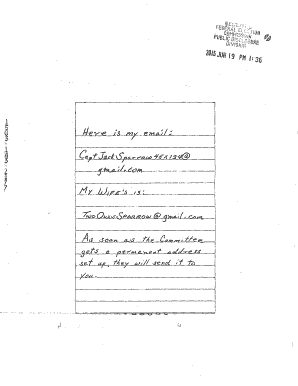 RECEIVED
FEDERAL ELECTION
COMMISSION
PUBLIC DISCLOSURE
DIVISION
2015 JUN 19 PM 1:36
Here is my email:
@
gmail.com
My Wife's is:
@gmail.com
As soon as the Committee
gets a permanent address
set up, they will send it to
you.